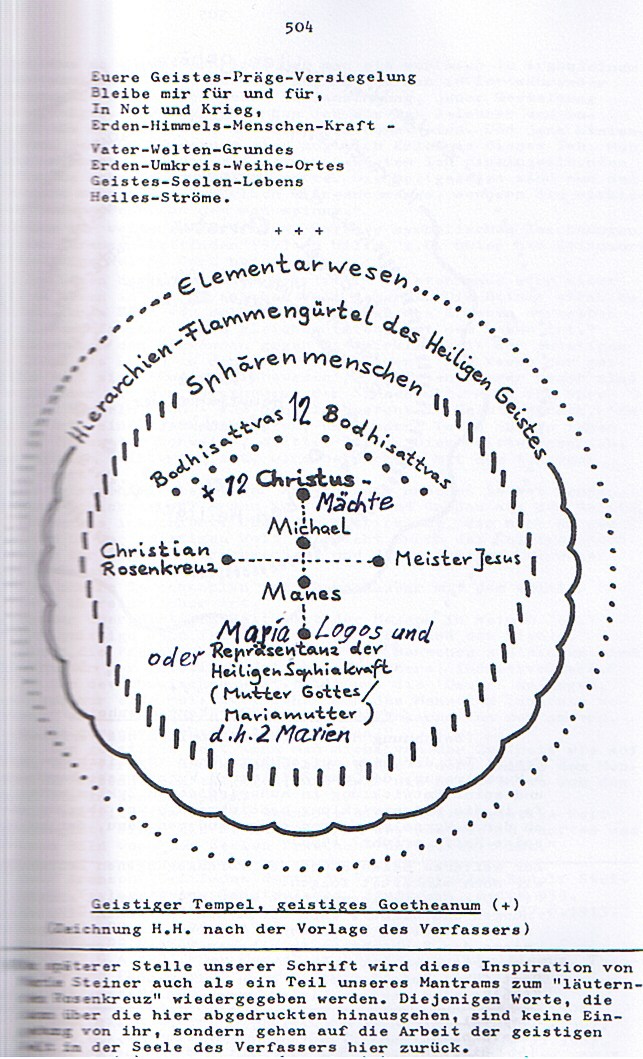 504
Euere Geistes-Präge-Versiegelung
Bleibe mir für und für,
In Not und Krieg,
Erden-Himmels-Menschen-Kraft -
Vater-Welten-Grundes
Erden-Umkreis-Weihe-Ortes
Geistes-Seelen-Lebens
Heiles-Ströme.
+ + +
Elementarwesen
Hierarchien-Flammengürtel des Heiligen Geistes
Sphärenmenschen
Bodhisattvas 12 Bodhisattvas
+ 12 Christus-
Mächte
Michael
Christian
Rosenkreuz
Meister Jesus
Manes
Maria Logos und
oder Repräsentanz der
Heiligen Sophiakraft
(Mutter Gottes/
Mariamutter)
d.h. 2 Marien
Geistiger Tempel, geistiges Goetheanum (+)
(Zeichnung H.H. nach der Vorlage des Verfassers)
späterer Stelle unserer Schrift wird diese Inspiration von
Steiner auch als ein Teil unseres Mantrams zum "läutern-
Rosenkreuz" wiedergegeben werden. Diejenigen Worte, die
über die hier abgedruckten hinausgehen, sind keine Ein-
von ihr, sondern gehen auf die Arbeit der geistigen
in der Seele des Verfassers hier zurück.